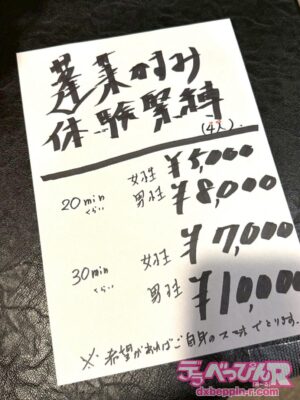 蓬莱かすみ
体験緊縛
(4人)
20min
くらい
女性 ¥5,000
男性 ¥8,000
30min
くらい
女性 ¥7,000
男性 ¥10,000
※希望があればご自身のスマホでとります。
デラべっぴんR
dxbeppin-r.com